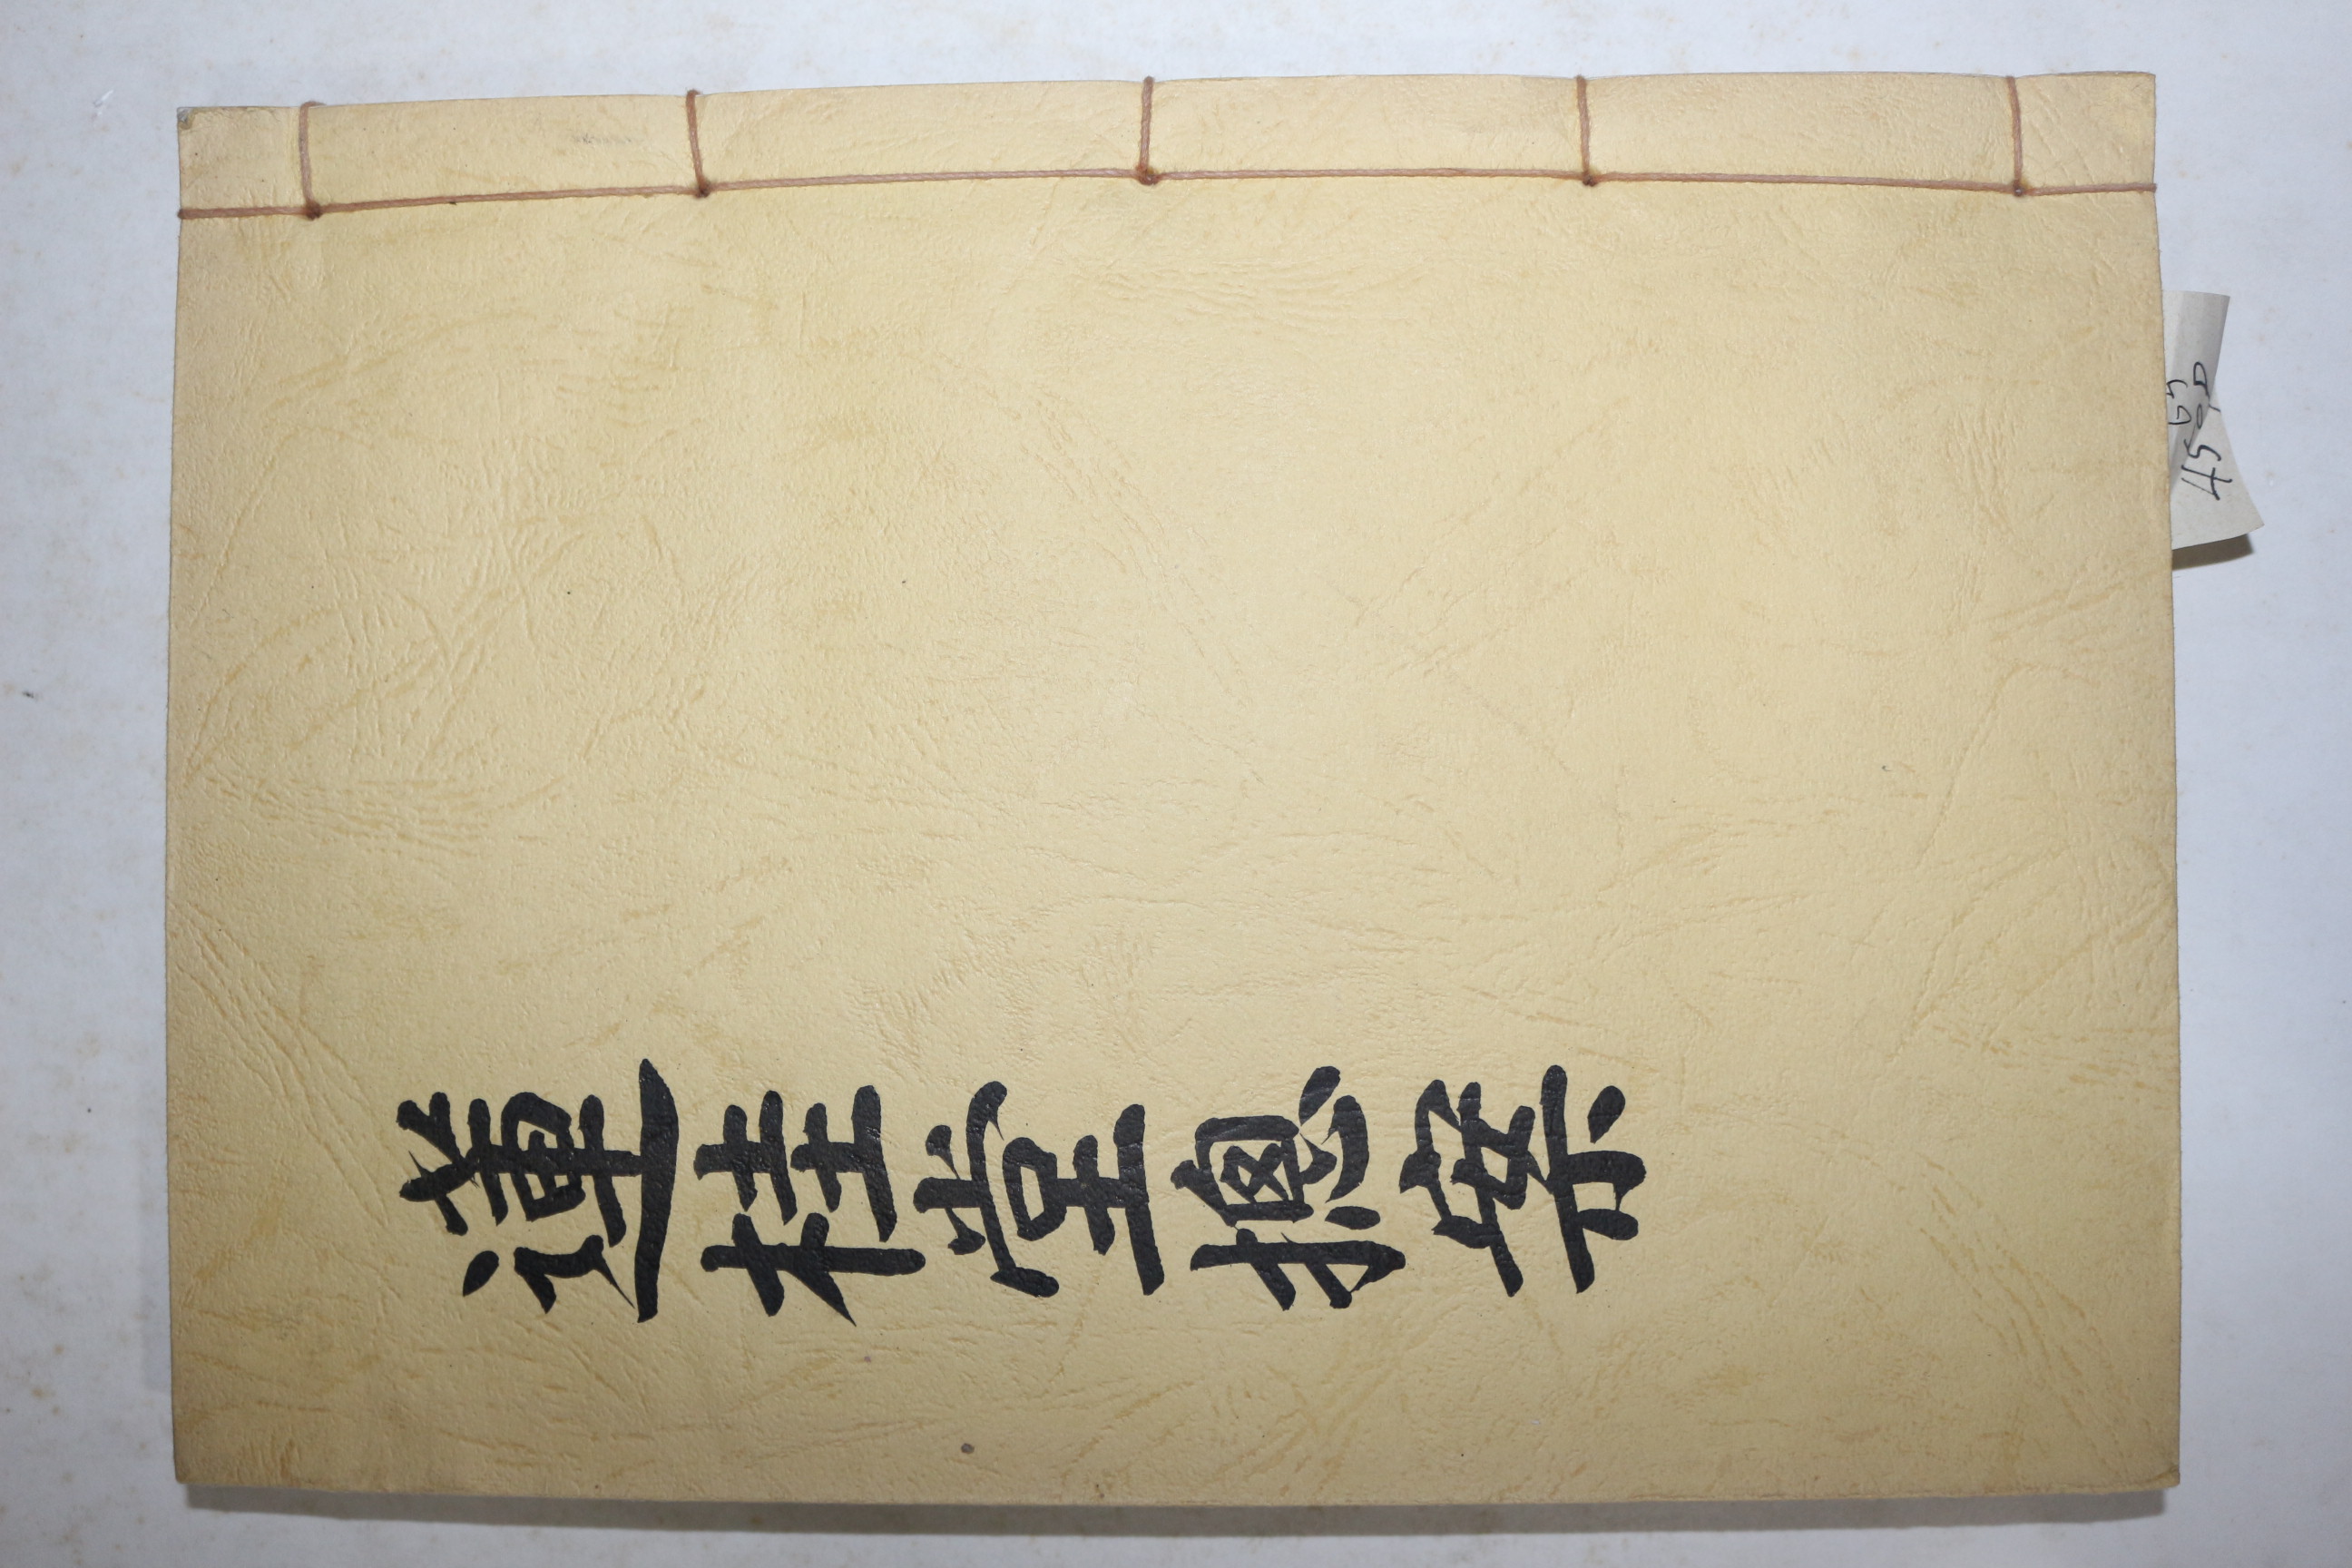 蓮桂堂摠案